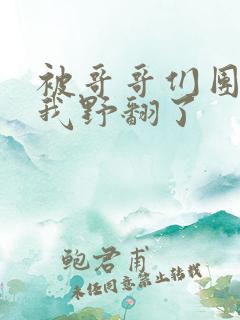 被哥哥们团
我野翻了
鲍君甫
未经同意禁止转载